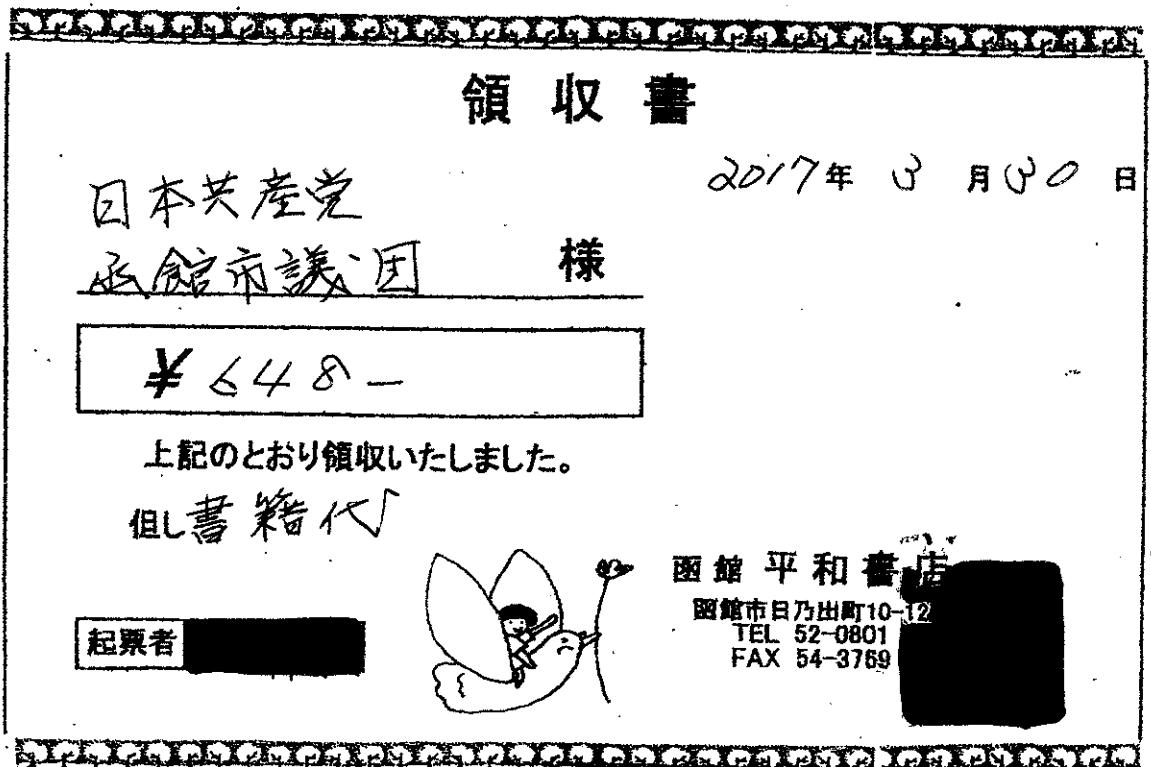 領収書
2017年 3月30日
日本共産党
函館市議団 様
¥648-
上記のとおり領収いたしました。
但し書籍代
函館 平和書店
函館市日乃出町10-12
TEL 52-0801
FAX 54-3769
起票者